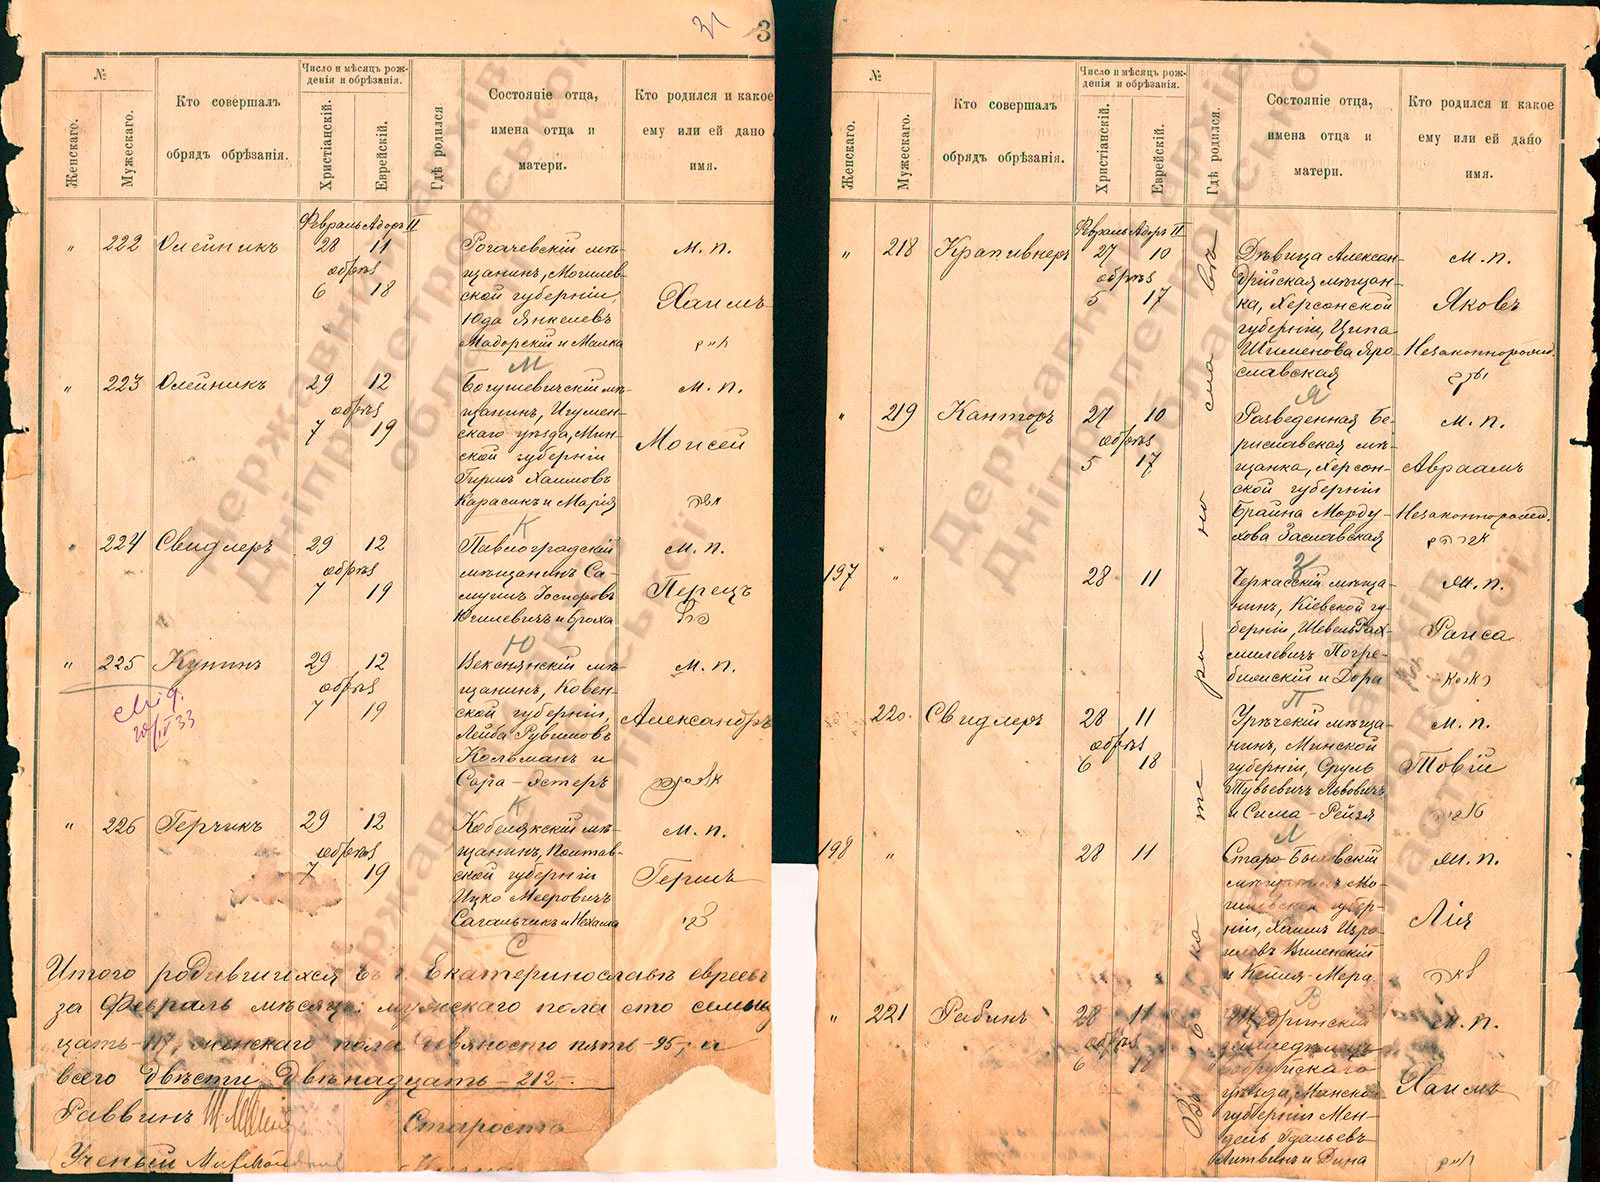 31
3
№
Женскаго.
Мужескаго.
Кто совершалъ
обрядъ обрѣзанія.
Число и мѣсяцъ рож-
денія и обрѣзанія.
Христіанскій.
Еврейскій.
Гдѣ родился
Состояніе отца,
имена отца и
матери.
Кто родился и какое
ему или ей дано
имя.
Февраль Адоръ II
" 222 Олейникъ 28 11
обрѣз
6 18
Рогачевскій мѣ-
щанинъ, Могилев-
ской губерніи,
Юда Янкелевъ
Мадорскій и Малка
М
м. п.
Хаимъ
חיים
" 223 Олейникъ 29 12
обрѣз
7 19
Богушевичскій мѣ-
щанинъ, Игумен-
скаго уѣзда, Мин-
ской губерніи
Гиршъ Хаимовъ
Карасикъ и Марія
К
м. п.
Моисей
משה
" 224 Свидлеръ 29 12
обрѣз
7 19
Павлоградскій
мѣщанинъ Са-
муилъ Іосифовъ
Юхилевичъ и Броха
Ю
м. п.
Перецъ
פרץ
" 225 Кунинъ 29 12
обрѣз
7 19
Векснянскій мѣ-
щанинъ, Ковен-
ской губерніи,
Лейба Рувимовъ
Кольманъ и
Сара-Эстеръ
К
м. п.
Александръ
20/IV 33
" 226 Герчикъ 29 12
обрѣз
7 19
Кобелякскій мѣ-
щанинъ, Полтав-
ской губерніи
Ицко Мееровичъ
Сагальчикъ и Нехама
С
м. п.
Гершъ
צבי
Итого родившихся въ г. Екатеринославѣ евреевъ
за Февраль мѣсяцъ: мужскаго пола сто семнад-
цать-117, женскаго пола девяносто пять-95, а
всего двѣсти двѣнадцать-212-.
Раввинъ
Староста
Ученый
№
Женскаго.
Мужескаго.
Кто совершалъ
обрядъ обрѣзанія.
Число и мѣсяцъ рож-
денія и обрѣзанія.
Христіанскій.
Еврейскій.
Гдѣ родился.
Состояніе отца,
имена отца и
матери.
Кто родился и какое
ему или ей дано
имя.
Въ Екатеринославѣ
Февраль Адоръ II
" 218 Крапивнеръ 27 10
обрѣз
5 17
Дѣвица Алексан-
дрійская мѣщан-
ка, Херсонской
губерніи, Ципа
Шлименова Яро-
славская
Я
м. п.
Яковъ
Незаконнорожд.
יעקב
" 219 Канторъ 27 10
обрѣз
5 17
Разведенная Бе-
риславская мѣ-
щанка, Херсон-
ской губерніи
Брайна Морду-
хова Заславская
З
м. п.
Авраамъ
Незаконнорожд.
אברהם
197 " 28 11
Черкасскій мѣща-
нинъ, Кіевской гу-
берніи, Шевель Рах-
милевичъ Погре-
бимскій и Дора
П
ж. п.
Раиса
220. Свидлеръ 28 11
обрѣз
6 18
Урѣчскій мѣща-
нинъ, Минской
губерніи, Сруль
Тувьевичъ Львовичъ
и Сима-Рейзя
Л
м. п.
Товій
טוביה
198 " 28 11
Старо-Быховскій
мѣщанинъ Мо-
гилевской губер-
ніи, Хаимъ Изро-
илевъ Виленскій
и Кейля-Мера
В
ж. п.
Лія
לאה
" 221 Рабинъ 28 11
обрѣз
6 18
Щедринскій
землевладѣлецъ
Бобруйскаго
уѣзда, Минской
губерніи Мен-
дель Гдальевъ
Литвинъ и Дина
м. п.
Хаимъ
חיים
Державний архів
Дніпропетровської
області